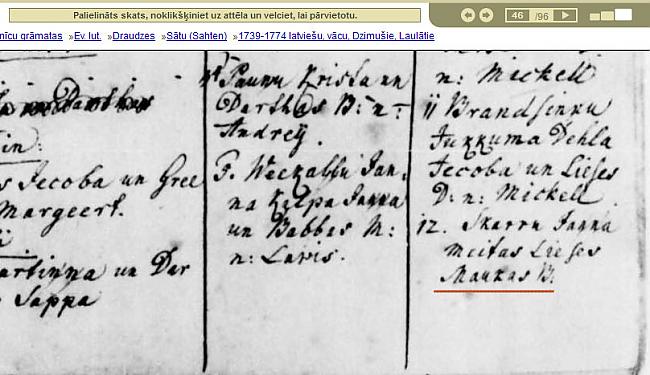 Palielināts skats, noklikšķiniet uz attēla un velciet, lai pārvietotu.
46 /96
nīcu grāmatas »Ev. lut. »Draudzes »Sātu (Sahten) »1739-1774 latviešu, vācu, Dzimušie, Laulātie
Jecoba un Gree
Margeert.
artinna un Dar
Sappa
Paunu Krista un
Darthas B: n:
Andrey.
F. Weckalsu Jan
na Kalpa Janna
un Babbes M:
n: Lavis.
n: Mickell
11 Brandsinku
Junkuma Dehla
Jecoba un Lieses
D: n: Mickell
12. Skarru Janna
meitas Lieses
Maukas B: